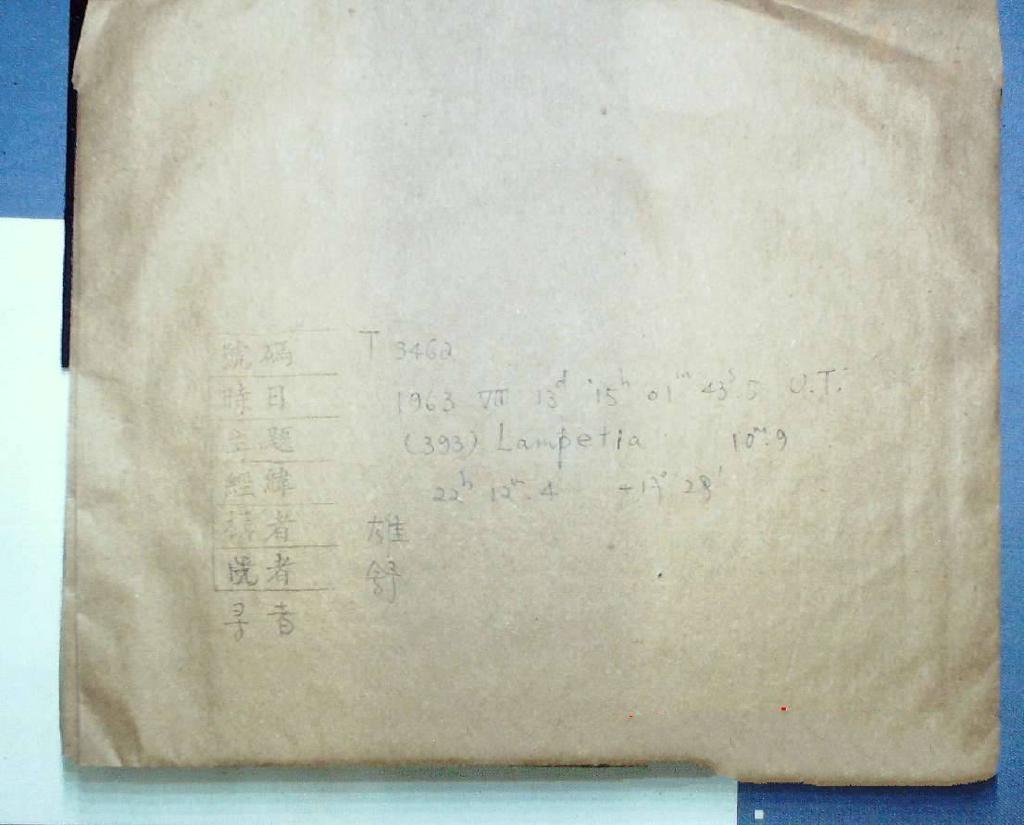 號碼 T 3462
時日 1963 VIII 13d 15h 01m 43s.5 U.T.
主題 (393) Lampetia 10m.9
經緯 22h 12m.4 +13° 28'
者 雄
者 舒